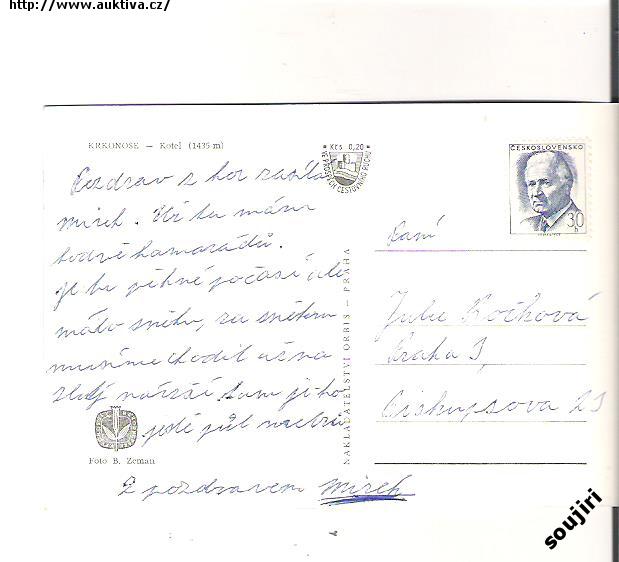 http://www.auktiva.cz/
KRKONOŠE – Kotel (1435 m)
Kčs 0,20
VE PROSPĚCH CESTOVNÍHO RUCHU
ČESKOSLOVENSKO
30 h
Pozdrav z hor zasílá
mirek. Už tu mám
kamarádů.
Je tu pěkné počasí ale
málo sněhu, za sněhem
musíme chodit až na
nářší tam je ho
ještě půl metru
Z pozdravem Mirek
Foto B. Zeman
NAKLADATELSTVÍ ORBIS – PRAHA
Paní
Julie Kočková
Praha 3,
Biskupcova
soujiri